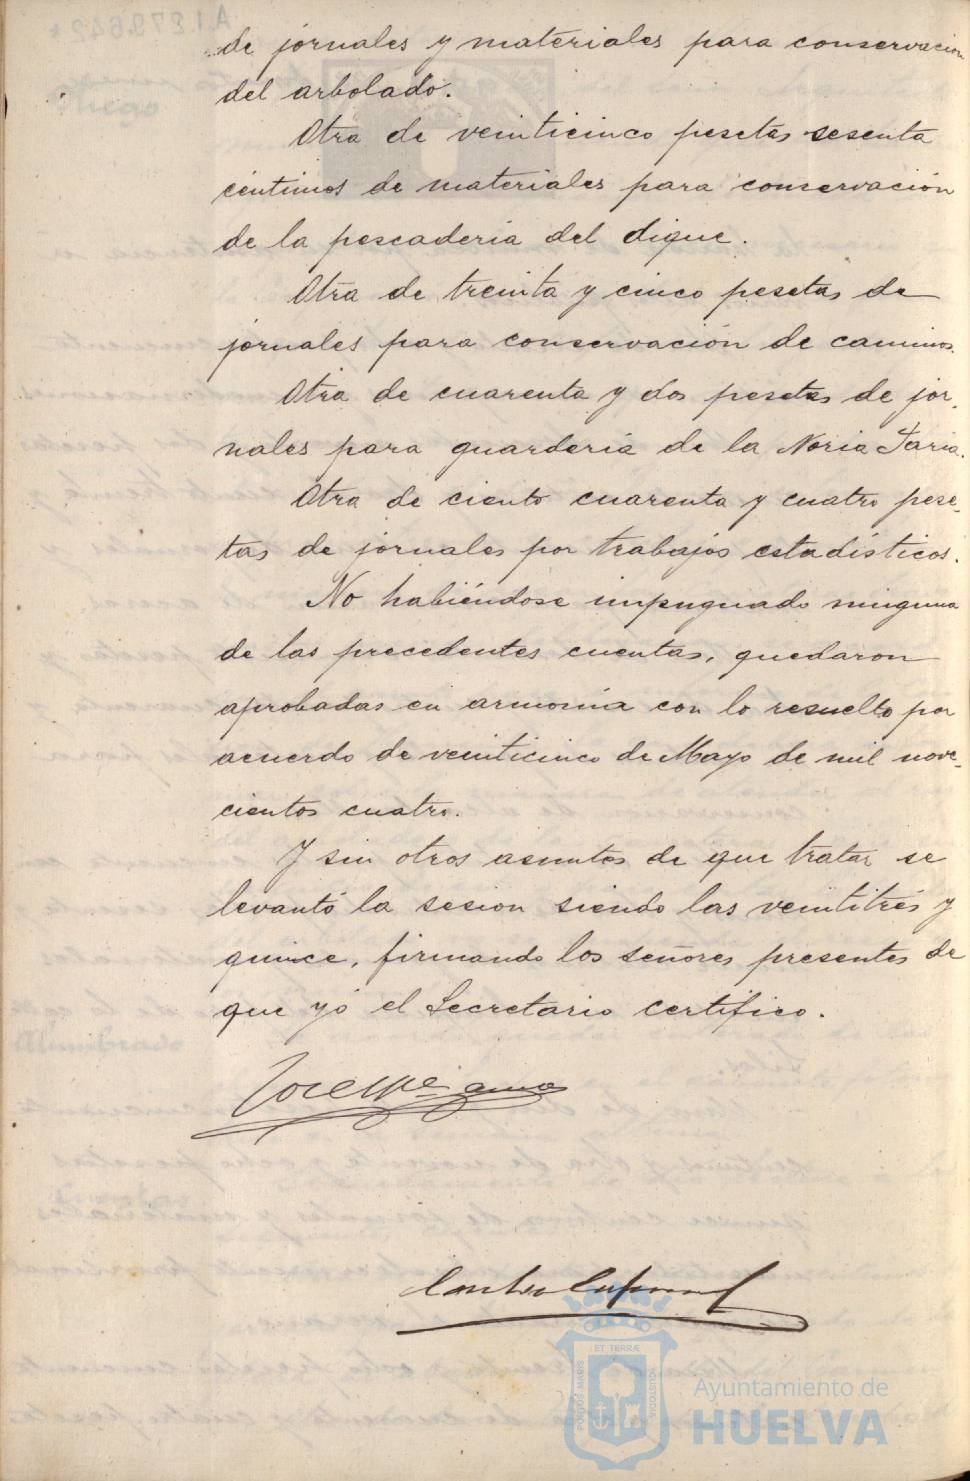 de jornales y materiales para conservacion
del arbolado.
Otra de veinticinco pesetas sesenta
céntimos de materiales para conservación
de la pescaderia del dique.
Otra de treinta y cinco pesetas de
jornales para conservación de caminos.
Otra de cuarenta y dos pesetas de jor-
nales para guarderia de la Noria Saria.
Otra de ciento cuarenta y cuatro pese-
tas de jornales por trabajos estadísticos.
No habiéndose impugnado ninguna
de las precedentes cuentas, quedaron
aprobadas en armonia con lo resuelto por
acuerdo de veinticinco de Mayo de mil nove-
cientos cuatro.
Y sin otros asuntos de que tratar se
levantó la sesion siendo las veintitrés y
quince, firmando los señores presentes de
que yó el Secretario certifico.
ET TERRÆ
PORTUS MARIS
CUSTODIA
Ayuntamiento de
HUELVA